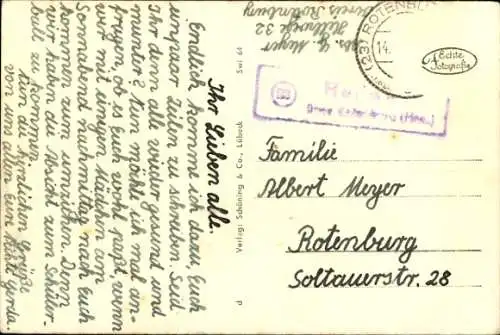 Ihr Lieben alle.
Endlich komme ich dazu, Euch
ein paar Zeilen zu schreiben. Seid
Ihr denn alle wieder gesund und
munter? Nun möchte ich mal an-
fragen, ob es Euch wohl paßt, wenn
wir mit einigen Mädchen am
Sonnabend nachmittag nach Euch
kommen zum umsehen. Denn
wir haben die Absicht zum Schüler-
ball zu kommen.
Nun die herzlichen Grüße
von uns allen Eure Gerda.
Meyer
Hellwege 32
Kreis Rotenburg
(23) ROTENBURG
14.
Echte
Fotografie
Verlag: Schöning & Co., Lübeck
Swi 64
Familie
Albert Meyer
Rotenburg
Soltauerstr. 28